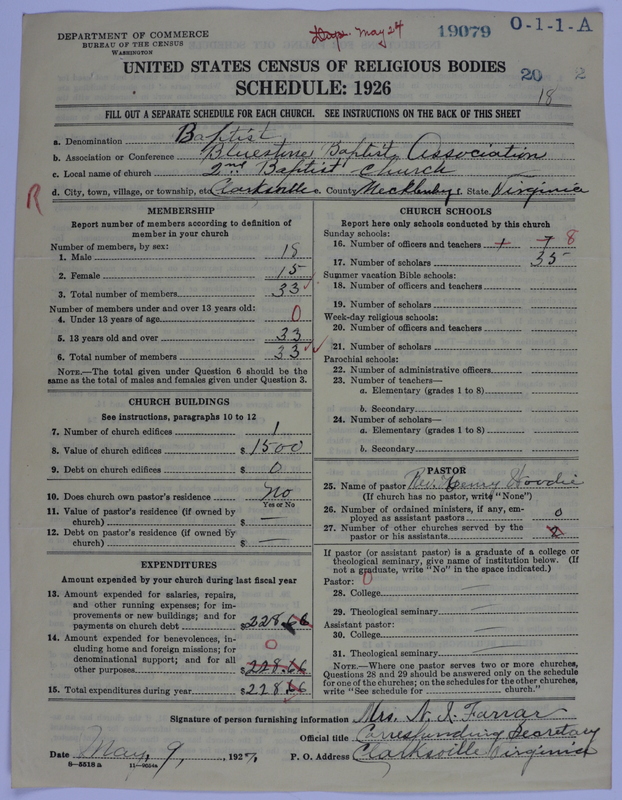 DEPARTMENT OF COMMERCE
BUREAU OF THE CENSUS
WASHINGTON
May 24
19079
O-1-1-A
20 2
18
UNITED STATES CENSUS OF RELIGIOUS BODIES
SCHEDULE: 1926
FILL OUT A SEPARATE SCHEDULE FOR EACH CHURCH. SEE INSTRUCTIONS ON THE BACK OF THIS SHEET
a. Denomination Baptist
b. Association or Conference Bluestone Baptist Association
c. Local name of church 2nd Baptist Church
R
d. City, town, village, or township, etc. Clarksville e. County Mecklenburg f. State Virginia
MEMBERSHIP
Report number of members according to definition of
member in your church
Number of members, by sex:
1. Male 18
2. Female 15
3. Total number of members 33
Number of members under and over 13 years old:
4. Under 13 years of age 0
5. 13 years old and over 33
6. Total number of members 33
NOTE.—The total given under Question 6 should be
same as the total of males and females given under Question 3.
CHURCH BUILDINGS
See instructions, paragraphs 10 to 12
7. Number of church edifices 1
8. Value of church edifices $ 1500
9. Debt on church edifices $ 0
10. Does church own pastor's residence No
Yes or No
11. Value of pastor's residence (if owned by
church) $ —
12. Debt on pastor's residence (if owned by
church) $ —
EXPENDITURES
Amount expended by your church during last fiscal year
13. Amount expended for salaries, repairs,
and other running expenses; for im-
provements or new buildings; and for
payments on church debt $ 228.66
14. Amount expended for benevolences, in-
cluding home and foreign missions; for
denominational support; and for all
other purposes 0 $ 228.66
15. Total expenditures during year $ 228.66
CHURCH SCHOOLS
Report here only schools conducted by this church
Sunday schools:
16. Number of officers and teachers 1 7 8
17. Number of scholars 35
Summer vacation Bible schools:
18. Number of officers and teachers
19. Number of scholars
Week-day religious schools:
20. Number of officers and teachers
21. Number of scholars
Parochial schools:
22. Number of administrative officers
23. Number of teachers—
a. Elementary (grades 1 to 8)
b. Secondary
24. Number of scholars—
a. Elementary (grades 1 to 8)
b. Secondary
PASTOR
25. Name of pastor Rev. Henry
(If church has no pastor, write "None")
26. Number of ordained ministers, if any, em-
ployed as assistant pastors 0
27. Number of other churches served by the
pastor or his assistants
If pastor (or assistant pastor) is a graduate of a college or
theological seminary, give name of institution below. (If
not a graduate, write "No" in the space indicated.)
Pastor: 0
28. College —
29. Theological seminary —
Assistant pastor:
30. College —
31. Theological seminary —
NOTE.—Where one pastor serves two or more churches,
Questions 28 and 29 should be answered only on the schedule
for one of the churches; on the schedules for the other churches,
write "See schedule for church."
Signature of person furnishing information Mrs. N. I. Farrar
Official title Corresponding Secretary
Date May, 9, 1927,
P. O. Address Clarksville Virginia
8—5518 a
11—9654a